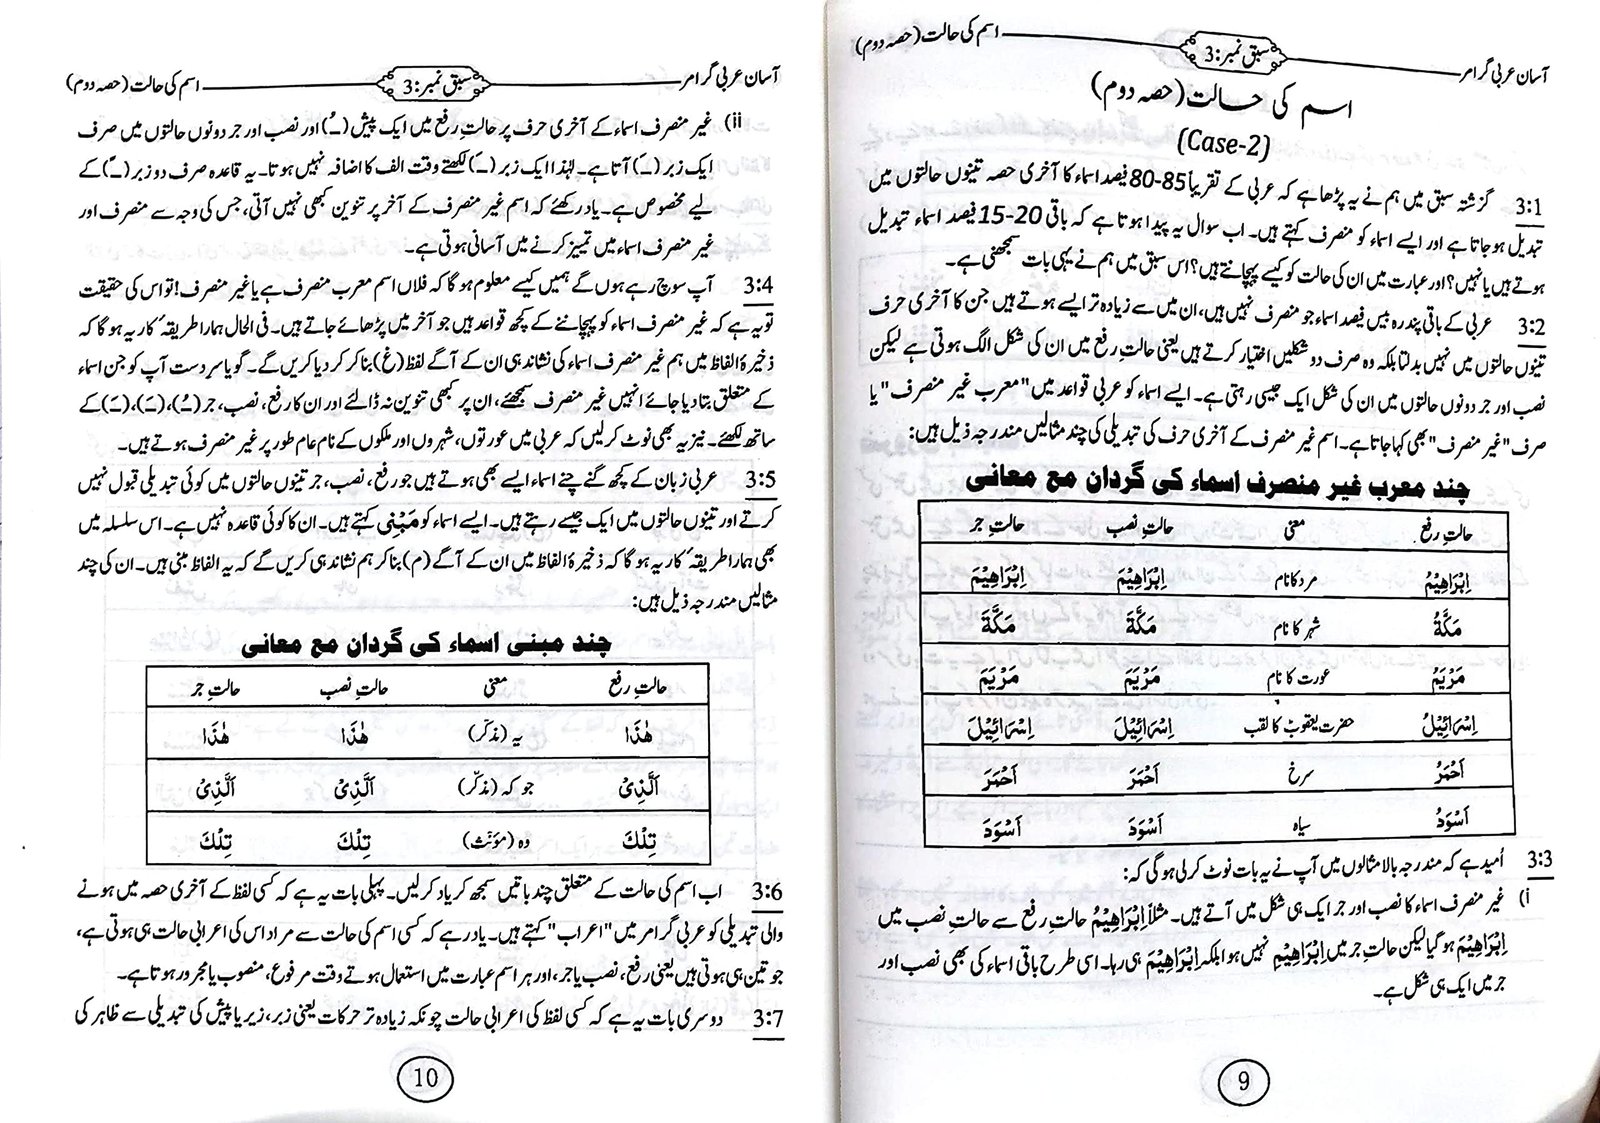 آسان عربی گرامر
سبق نمبر: 3
اسم کی حالت (حصہ دوم)
اسم کی حالت (حصہ دوم)
(Case-2)
3:1 گزشتہ سبق میں ہم نے یہ پڑھا ہے کہ عربی کے تقریباً 85-80 فیصد اسماء کا آخری حصہ تینوں حالتوں میں
تبدیل ہو جاتا ہے اور ایسے اسماء کو منصرف کہتے ہیں۔ اب سوال یہ پیدا ہوتا ہے کہ باقی 20-15 فیصد اسماء تبدیل
ہوتے ہیں یا نہیں؟ اور عبارت میں ان کی حالت کو کیسے پہچانتے ہیں؟ اس سبق میں ہم نے یہی بات سمجھنی ہے۔
3:2 عربی کے باقی پندرہ بیس فیصد اسماء جو منصرف نہیں ہیں، ان میں سے زیادہ تر ایسے ہوتے ہیں جن کا آخری حرف
تینوں حالتوں میں نہیں بدلتا بلکہ وہ صرف دو شکلیں اختیار کرتے ہیں یعنی حالتِ رفع میں ان کی شکل الگ ہوتی ہے لیکن
نصب اور جر دونوں حالتوں میں ان کی شکل ایک جیسی رہتی ہے۔ ایسے اسماء کو عربی قواعد میں "معرب غیر منصرف" یا
صرف "غیر منصرف" بھی کہا جاتا ہے۔ اسم غیر منصرف کے آخری حرف کی تبدیلی کی چند مثالیں مندرجہ ذیل ہیں:
چند معرب غیر منصرف اسماء کی گردان مع معانی
حالتِ رفع معنی حالتِ نصب حالتِ جر
اِبْرَاهِيْمُ مرد کا نام اِبْرَاهِيْمَ اِبْرَاهِيْمَ
مَكَّةُ شہر کا نام مَكَّةَ مَكَّةَ
مَرْيَمُ عورت کا نام مَرْيَمَ مَرْيَمَ
اِسْرَائِيْلُ حضرت یعقوبؑ کا لقب اِسْرَائِيْلَ اِسْرَائِيْلَ
اَحْمَرُ سرخ اَحْمَرَ اَحْمَرَ
اَسْوَدُ سیاہ اَسْوَدَ اَسْوَدَ
3:3 اُمید ہے کہ مندرجہ بالا مثالوں میں آپ نے یہ بات نوٹ کر لی ہو گی کہ:
i) غیر منصرف اسماء کا نصب اور جر ایک ہی شکل میں آتے ہیں۔ مثلاً اِبْرَاهِيْمُ حالتِ رفع سے حالتِ نصب میں
اِبْرَاهِيْمَ ہو گیا لیکن حالتِ جر میں اِبْرَاهِيْمِ نہیں ہوا بلکہ اِبْرَاهِيْمَ ہی رہا۔ اسی طرح باقی اسماء کی بھی نصب اور
جر میں ایک ہی شکل ہے۔
9
آسان عربی گرامر
سبق نمبر: 3
اسم کی حالت (حصہ دوم)
ii) غیر منصرف اسماء کے آخری حرف پر حالتِ رفع میں ایک پیش (ـُ) اور نصب اور جر دونوں حالتوں میں صرف
ایک زبر (ـَ) آتا ہے۔ لہٰذا ایک زبر (ـَ) لکھتے وقت الف کا اضافہ نہیں ہوتا۔ یہ قاعدہ صرف دو زبر (ـً) کے
لیے مخصوص ہے۔ یاد رکھئے کہ اسم غیر منصرف کے آخر پر تنوین کبھی نہیں آتی، جس کی وجہ سے منصرف اور
غیر منصرف اسماء میں تمییز کرنے میں آسانی ہوتی ہے۔
3:4 آپ سوچ رہے ہوں گے ہمیں کیسے معلوم ہو گا کہ فلاں اسم معرب منصرف ہے یا غیر منصرف! تو اس کی حقیقت
تو یہ ہے کہ غیر منصرف اسماء کو پہچاننے کے کچھ قواعد ہیں جو آخر میں پڑھائے جاتے ہیں۔ فی الحال ہمارا طریقۂ کار یہ ہو گا کہ
ذخیرۂ الفاظ میں ہم غیر منصرف اسماء کی نشاندہی ان کے آگے لفظ (غ) بنا کر کر دیا کریں گے۔ گویا سردست آپ کو جن اسماء
کے متعلق بتا دیا جائے انہیں غیر منصرف سمجھئے، ان پر کبھی تنوین نہ ڈالئے اور ان کا رفع، نصب، جر (ـُ)، (ـَ)، (ـَ) کے
ساتھ لکھئے۔ نیز یہ بھی نوٹ کر لیں کہ عربی میں عورتوں، شہروں اور ملکوں کے نام عام طور پر غیر منصرف ہوتے ہیں۔
3:5 عربی زبان کے کچھ گنے چنے اسماء ایسے بھی ہوتے ہیں جو رفع، نصب، جر تینوں حالتوں میں کوئی تبدیلی قبول نہیں
کرتے اور تینوں حالتوں میں ایک جیسے رہتے ہیں۔ ایسے اسماء کو مَبْنِی کہتے ہیں۔ ان کا کوئی قاعدہ نہیں ہے۔ اس سلسلہ میں
بھی ہمارا طریقۂ کار یہ ہو گا کہ ذخیرۂ الفاظ میں ان کے آگے (م) بنا کر ہم نشاندہی کریں گے کہ یہ الفاظ مبنی ہیں۔ ان کی چند
مثالیں مندرجہ ذیل ہیں:
چند مبنی اسماء کی گردان مع معانی
حالتِ رفع معنی حالتِ نصب حالتِ جر
هٰذَا یہ (مذکّر) هٰذَا هٰذَا
اَلَّذِىْ جو کہ (مذکّر) اَلَّذِىْ اَلَّذِىْ
تِلْكَ وہ (مؤنّث) تِلْكَ تِلْكَ
3:6 اب اسم کی حالت کے متعلق چند باتیں سمجھ کر یاد کر لیں۔ پہلی بات یہ ہے کہ کسی لفظ کے آخری حصہ میں ہونے
والی تبدیلی کو عربی گرامر میں "اعراب" کہتے ہیں۔ یاد رہے کہ کسی اسم کی حالت سے مراد اس کی اعرابی حالت ہی ہوتی ہے،
جو تین ہی ہوتی ہیں یعنی رفع، نصب یا جر، اور ہر اسم عبارت میں استعمال ہوتے وقت مرفوع، منصوب یا مجرور ہوتا ہے۔
3:7 دوسری بات یہ ہے کہ کسی لفظ کی اعرابی حالت چونکہ زیادہ تر حرکات یعنی زبر، زیر یا پیش کی تبدیلی سے ظاہر کی
10